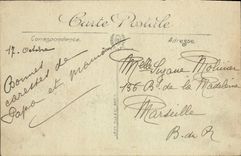 Carte Postale
Correspondance
Adresse
17 Octobre
Bonnes
caresses de
Papa et maman
Melle Suzane Molinier
136 Bd de la Madeleine
Marseille
B. du R